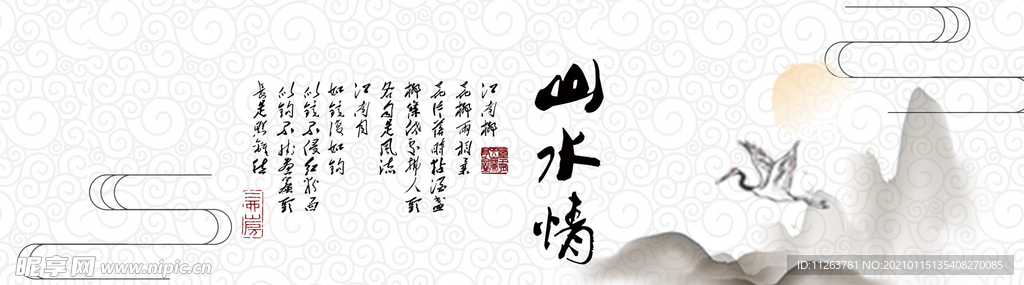 山水情
江南柳
花柳兩相柔
花片落時粘酒盞
柳條低處拂人頭
各自是風流
江南月
如鏡復如鈎
似鏡不侵紅粉面
似鈎不掛畫簾頭
長是照離愁
昵享网 www.nipic.cn
ID:11263781 NO:20210115135408270085